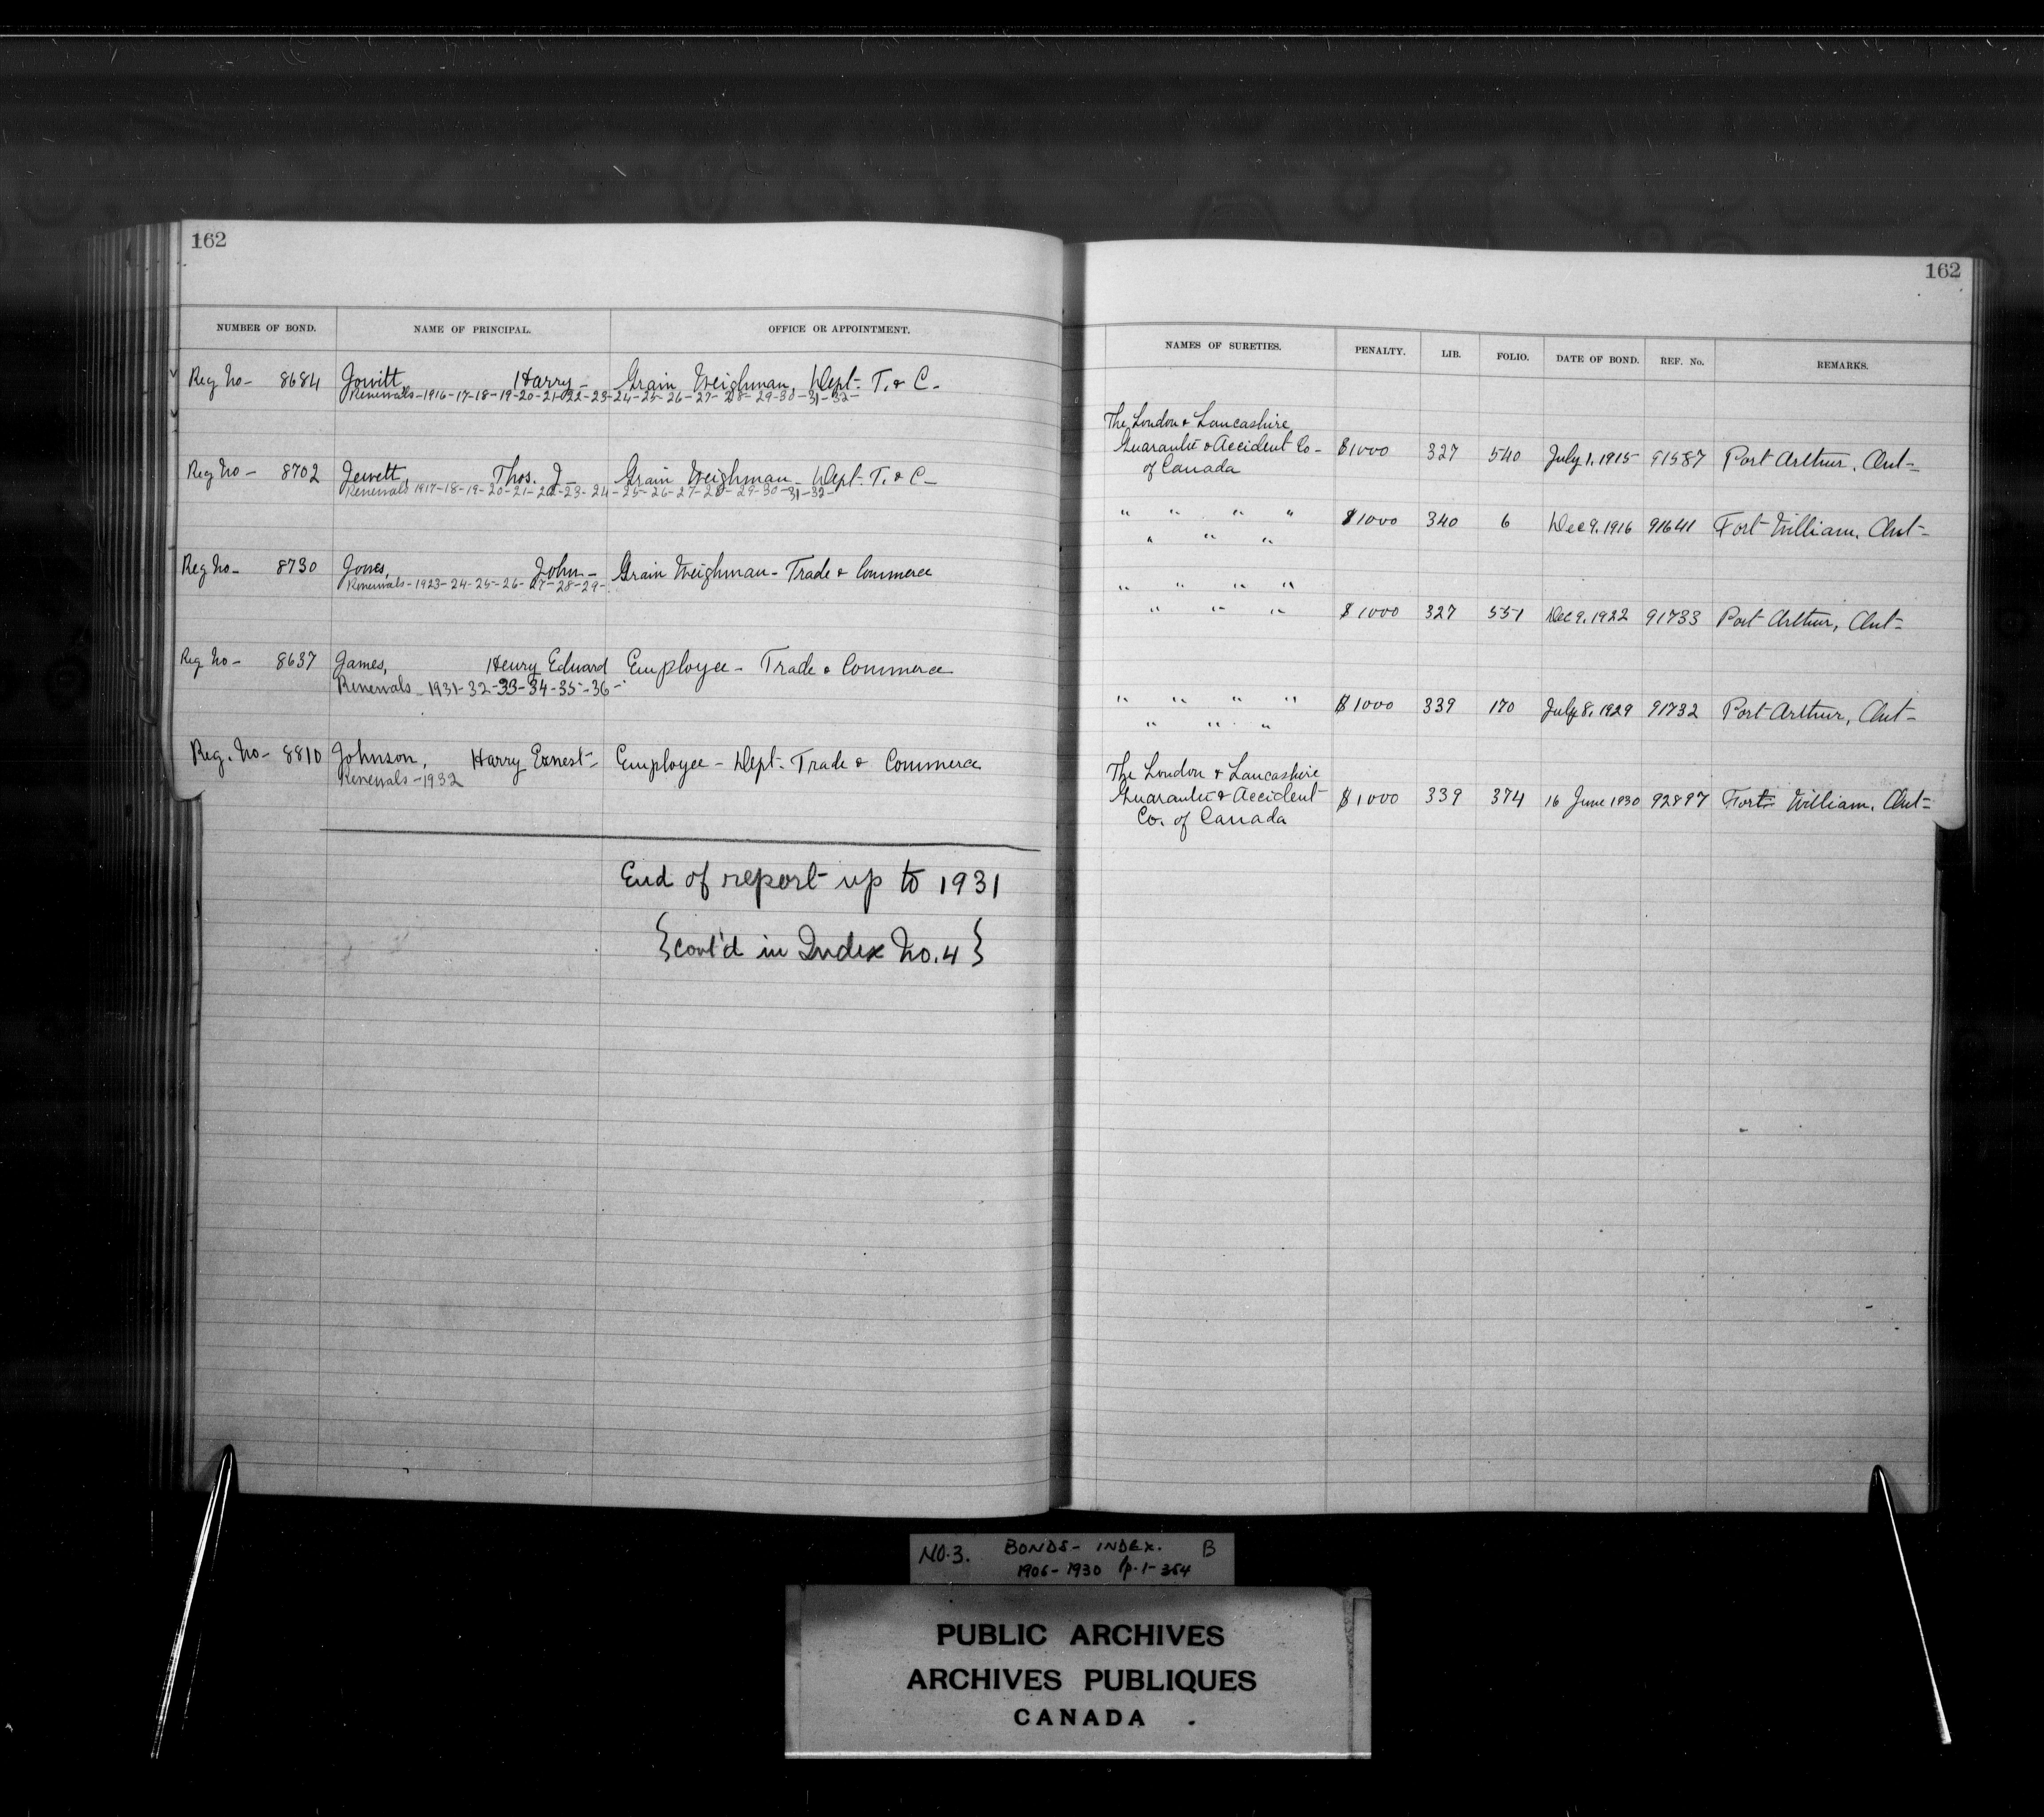 162
NUMBER OF BOND. NAME OF PRINCIPAL. OFFICE OR APPOINTMENT.
Reg No - 8684 Jowitt, Harry - Grain Weighman, Dept. T. & C -
Renewals - 1916-17-18-19-20-21-22-23-24-25-26-27-28-29-30-31-32-
Reg No - 8702 Jewett, Thos. J - Grain Weighman - Dept. T. & C -
Renewals 1917-18-19-20-21-22-23-24-25-26-27-28-29-30-31-32-
Reg No - 8730 Jones, John - Grain Weighman - Trade & Commerce
Renewals - 1923-24-25-26-27-28-29-
Reg No - 8637 James, Henry Edward Employee - Trade & Commerce
Renewals - 1931-32-33-34-35-36-
Reg. No - 8810 Johnson, Harry Ernest - Employee - Dept. Trade & Commerce
Renewals - 1932
End of report up to 1931
{cont'd in Index No. 4}
162
NAMES OF SURETIES. PENALTY. LIB. FOLIO. DATE OF BOND. REF. No. REMARKS.
The London & Lancashire
Guarantee & Accident Co - $1000 327 540 July 1. 1915 91587 Port Arthur, Ont -
of Canada
" " " " $1000 340 6 Dec 9. 1916 91641 Fort William, Ont -
" " "
" " " "
" " " $1000 327 551 Dec 9. 1922 91733 Port Arthur, Ont -
" " " " $1000 339 170 July 8, 1929 91732 Port Arthur, Ont -
" " "
The London & Lancashire
Guarantee & Accident $1000 339 374 16 June 1930 92897 Fort William, Ont -
Co. of Canada
NO. 3. BONDS - INDEX. B
1906 - 1930 p. 1-354
PUBLIC ARCHIVES
ARCHIVES PUBLIQUES
CANADA